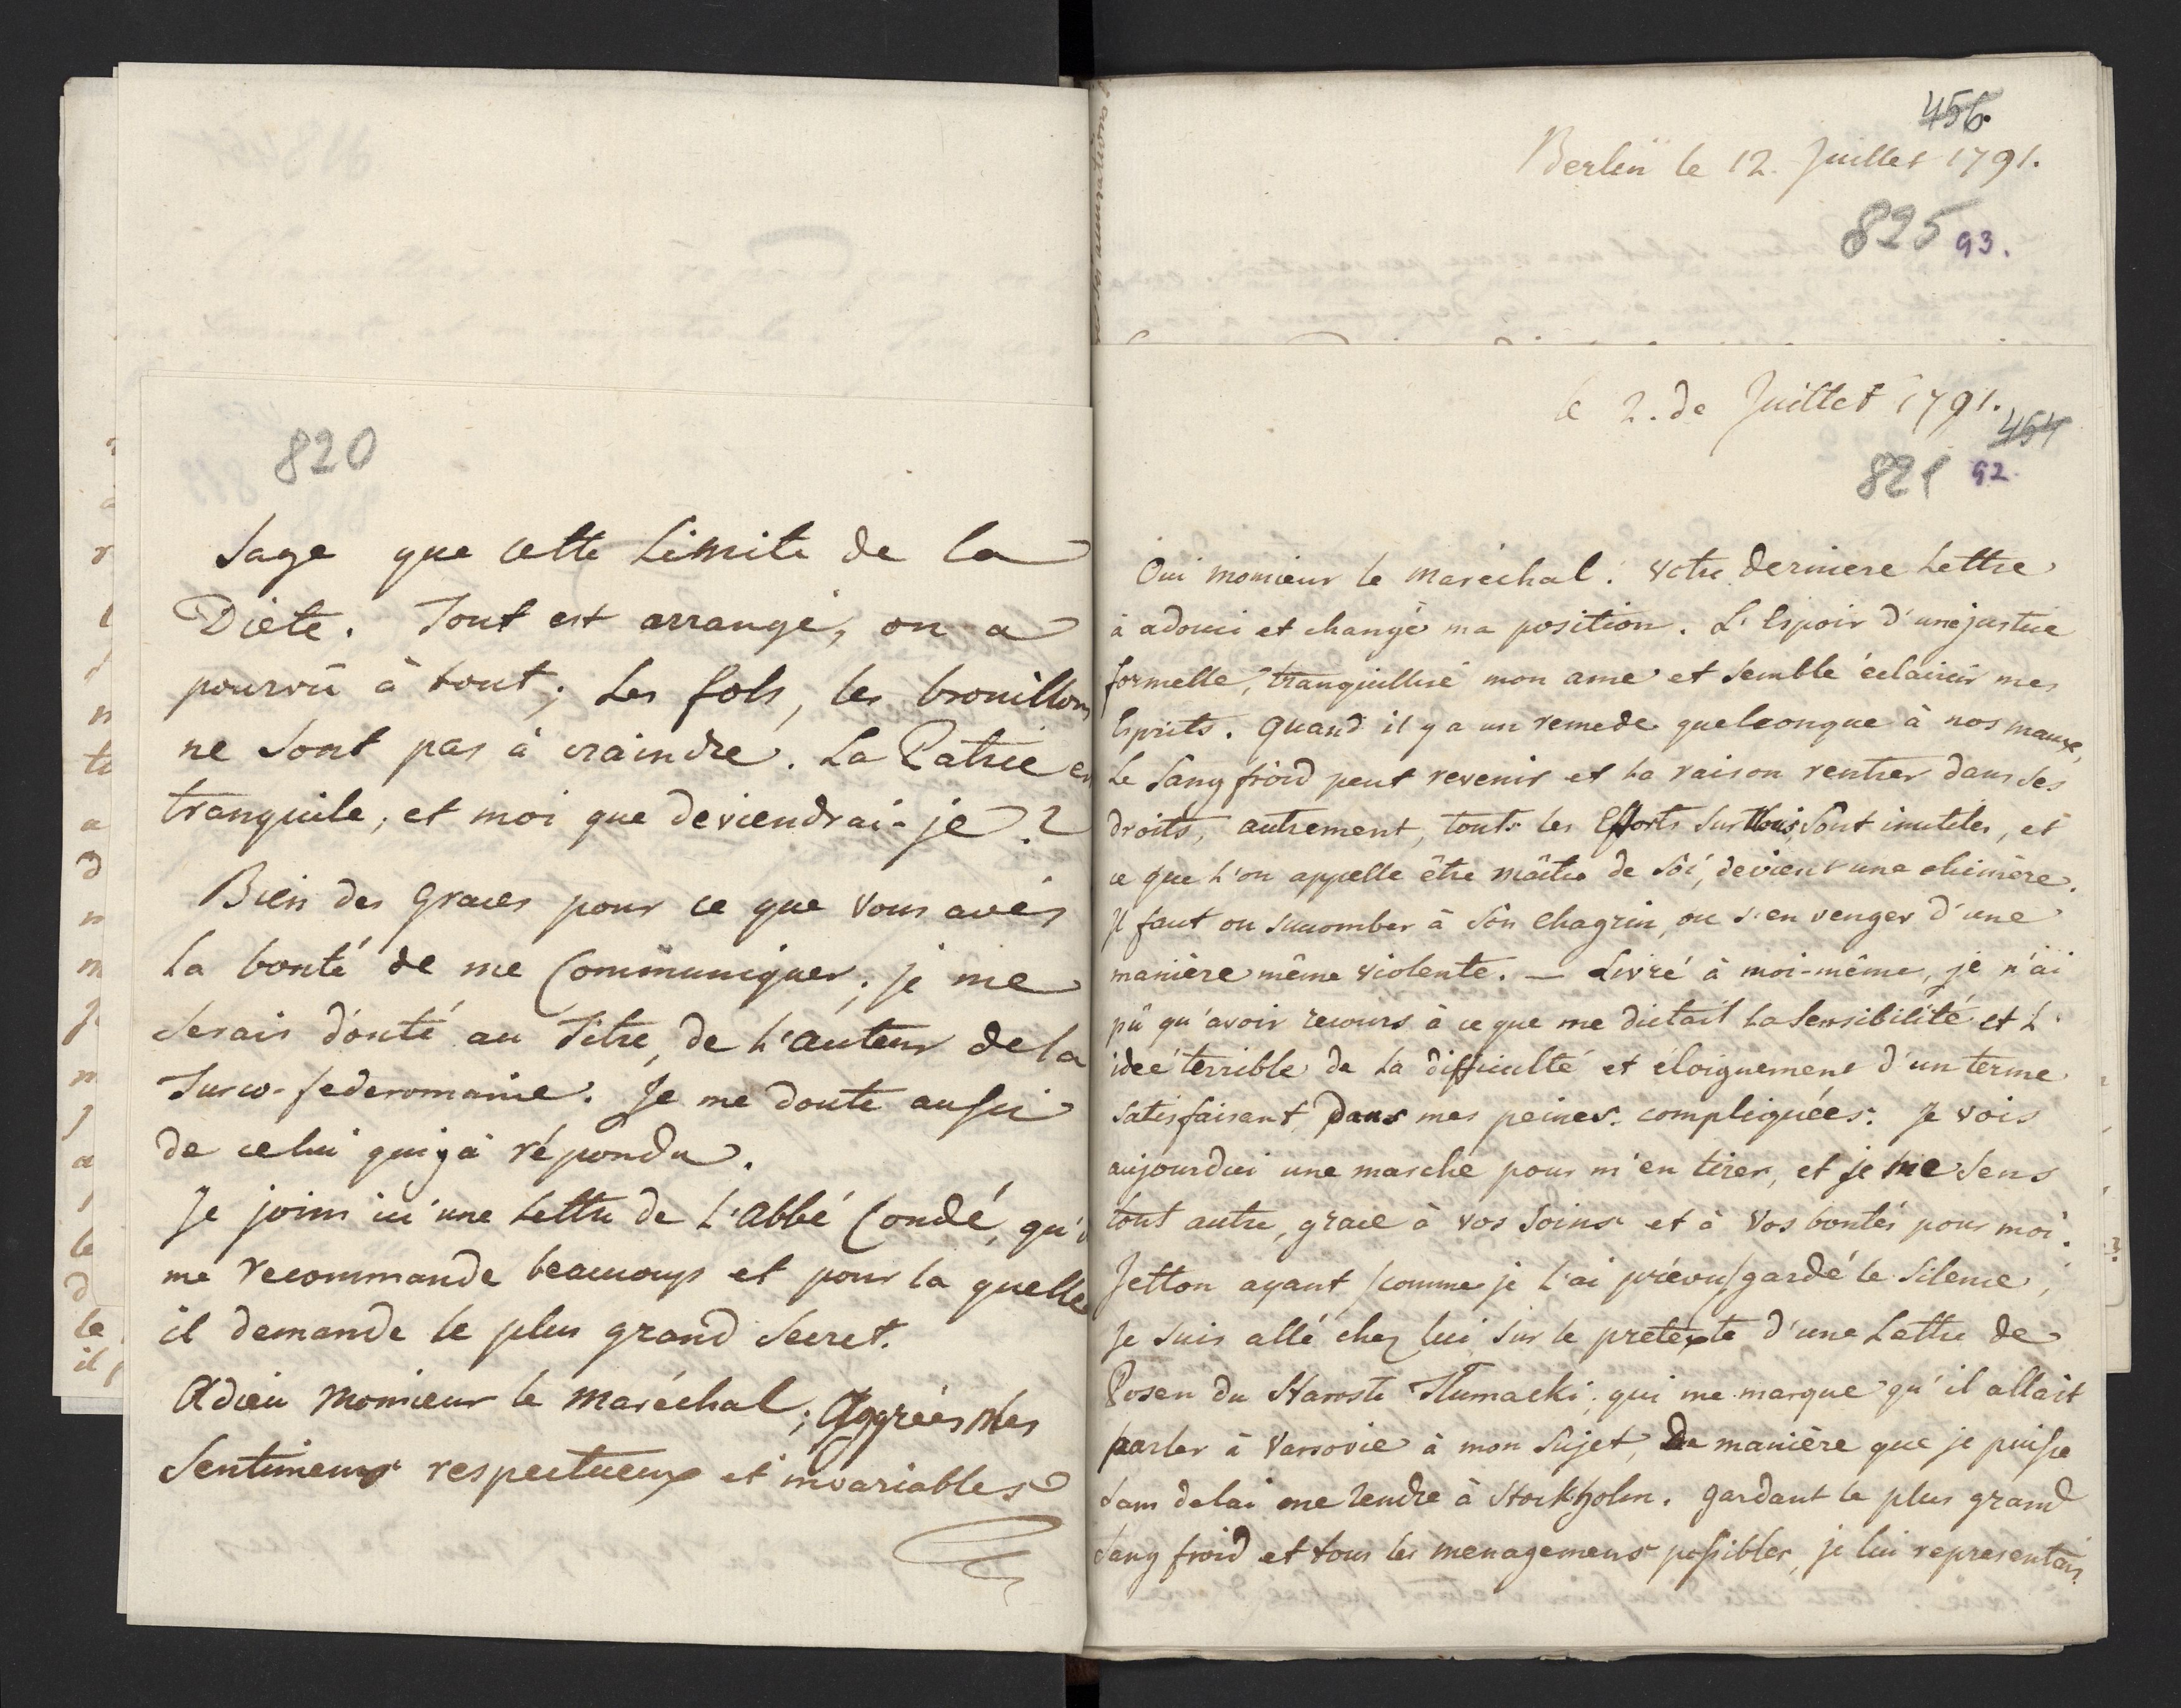 820
Sage que cette Limite de la
Diète. Tout est arrangé, on a
pourvû à tout; Les fols, les brouillons
ne Sont pas à craindre. La Patrie
tranquile, et moi que deviendrai-je?
Bien des graces pour ce que vous avés
la bonté de me Communiquer; je me
serais douté au Titre, de L'auteur de la
Turco-federomanie. Je me doute aussi
de celui qui y a répondu.
Je joins ici une Lettre de L'abbé Condé, qu'
me recommande beaucoup et pour la quelle
il demande le plus grand Secret.
Adieu Monsieur le Maréchal; Aggréés Mes
Sentimens respectueux et invariables
456.
Berlin le 12. Juillet 1791.
825 93.
le 2. de Juillet 1791.
454
821 92.
Oui monsieur le maréchal. votre derniere Lettre
à adouci et changé ma position. L'Espoir d'une justice
formelle, tranquillise mon ame et Semble éclaircir mes
Esprits. Quand il y a un remede quelconque à nos maux,
Le Sang froid peut revenir et la raison rentrer dans Ses
droits, autrement, touts les Efforts sur Nous, Sont inutiles, et
ce que L'on appelle être maître de Soi, devient une chimère.
Il faut ou succomber à Son Chagrin, ou s'en venger d'une
manière même violente. — Livré à moi-même, je n'ai
pû qu'avoir recours à ce que me dictait la Sensibilité et L'
ideé terrible de la difficulté et éloignement d'un terme
satisfaisant Dans mes peines compliquées. Je vois
aujourdui une marche pour m'en tirer, et je me Sens
tout autre, grace à vos Soins et à Vos bontés pour moi.
Jetton ayant /comme je l'ai prévu/ gardé le Silence,
Je Suis allé chez lui Sur le pretexte d'une Lettre de
Posen du Staroste Tlumacki, qui me marque qu'il allait
parler à Varsovie à mon Sujet, De manière que je puisse
sans delai me rendre à Stockholm. gardant le plus grand
Sang froid et tous les menagemens possibles, je lui representais